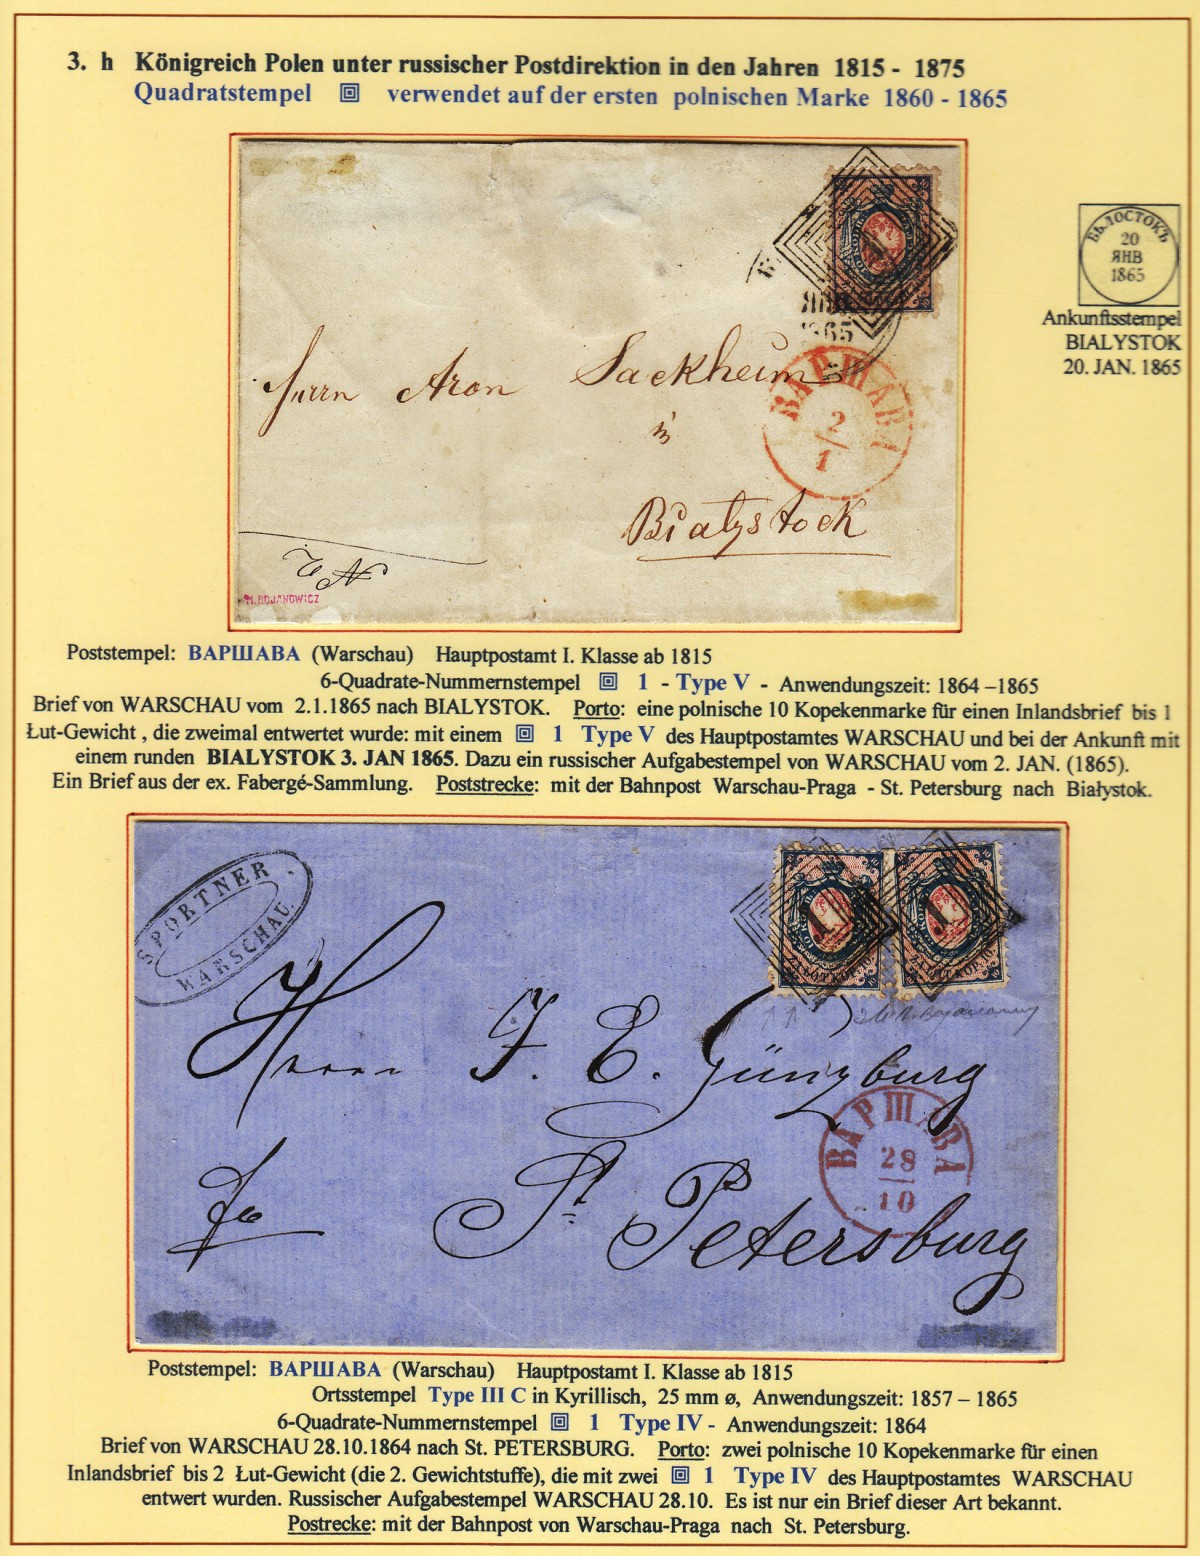 3. h Königreich Polen unter russischer Postdirektion in den Jahren 1815 - 1875
Quadratstempel verwendet auf der ersten polnischen Marke 1860 - 1865
БѢЛОСТОКЪ
20
ЯНВ
1865
Ankunftsstempel
BIALYSTOK
20. JAN. 1865
1865
Herrn Aron Sackheim
ВАРШАВА
2
1
in
Bialystock
M. BOJANOWICZ
Poststempel: ВАРШАВА (Warschau) Hauptpostamt I. Klasse ab 1815
6-Quadrate-Nummernstempel 1 - Type V - Anwendungszeit: 1864 –1865
Brief von WARSCHAU vom 2.1.1865 nach BIALYSTOK. Porto: eine polnische 10 Kopekenmarke für einen Inlandsbrief bis 1
Łut-Gewicht , die zweimal entwertet wurde: mit einem 1 Type V des Hauptpostamtes WARSCHAU und bei der Ankunft mit
einem runden BIALYSTOK 3. JAN 1865. Dazu ein russischer Aufgabestempel von WARSCHAU vom 2. JAN. (1865).
Ein Brief aus der ex. Fabergé-Sammlung. Poststrecke: mit der Bahnpost Warschau-Praga - St. Petersburg nach Białystok.
S PORTNER
WARSCHAU.
1 1
ZA ŁÓT KOP. 10
Herrn J. E. Günzburg
ВАРШАВА
28
10
St. Petersburg
Poststempel: ВАРШАВА (Warschau) Hauptpostamt I. Klasse ab 1815
Ortsstempel Type III C in Kyrillisch, 25 mm ø, Anwendungszeit: 1857 – 1865
6-Quadrate-Nummernstempel 1 Type IV - Anwendungszeit: 1864
Brief von WARSCHAU 28.10.1864 nach St. PETERSBURG. Porto: zwei polnische 10 Kopekenmarke für einen
Inlandsbrief bis 2 Łut-Gewicht (die 2. Gewichtstuffe), die mit zwei 1 Type IV des Hauptpostamtes WARSCHAU
entwert wurden. Russischer Aufgabestempel WARSCHAU 28.10. Es ist nur ein Brief dieser Art bekannt.
Postrecke: mit der Bahnpost von Warschau-Praga nach St. Petersburg.